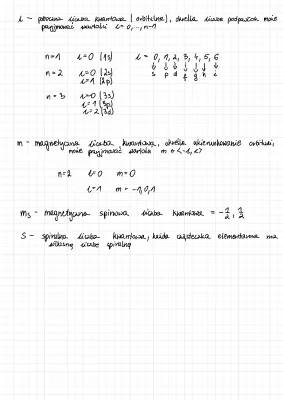 l - poboczna liczba kwantowa (orbitalna), określa liczbę podpowłok może
przyjmować wartości l = 0,...,n-1
n=1 l=0 (1s)
n=2 l=0 (2s)
l=1 (2p)
n=3 l=0 (3s)
l=1 (3p)
l=2 (3d)
l = 0, 1, 2, 3, 4, 5, 6
↓ ↓ ↓ ↓ ↓ ↓ ↓
s p d f g h i
m - magnetyczna liczba kwantowa, określa ukierunkowanie orbitali,
może przyjmować wartości m ∈ <-l, l>
n=2 l=0 m=0
l=1 m = -1,0,1
ms - magnetyczna spinowa liczba kwantowa = -1/2, 1/2
S - spinowa liczba kwantowa, każda cząsteczka elementarna ma
własną liczbę spinową